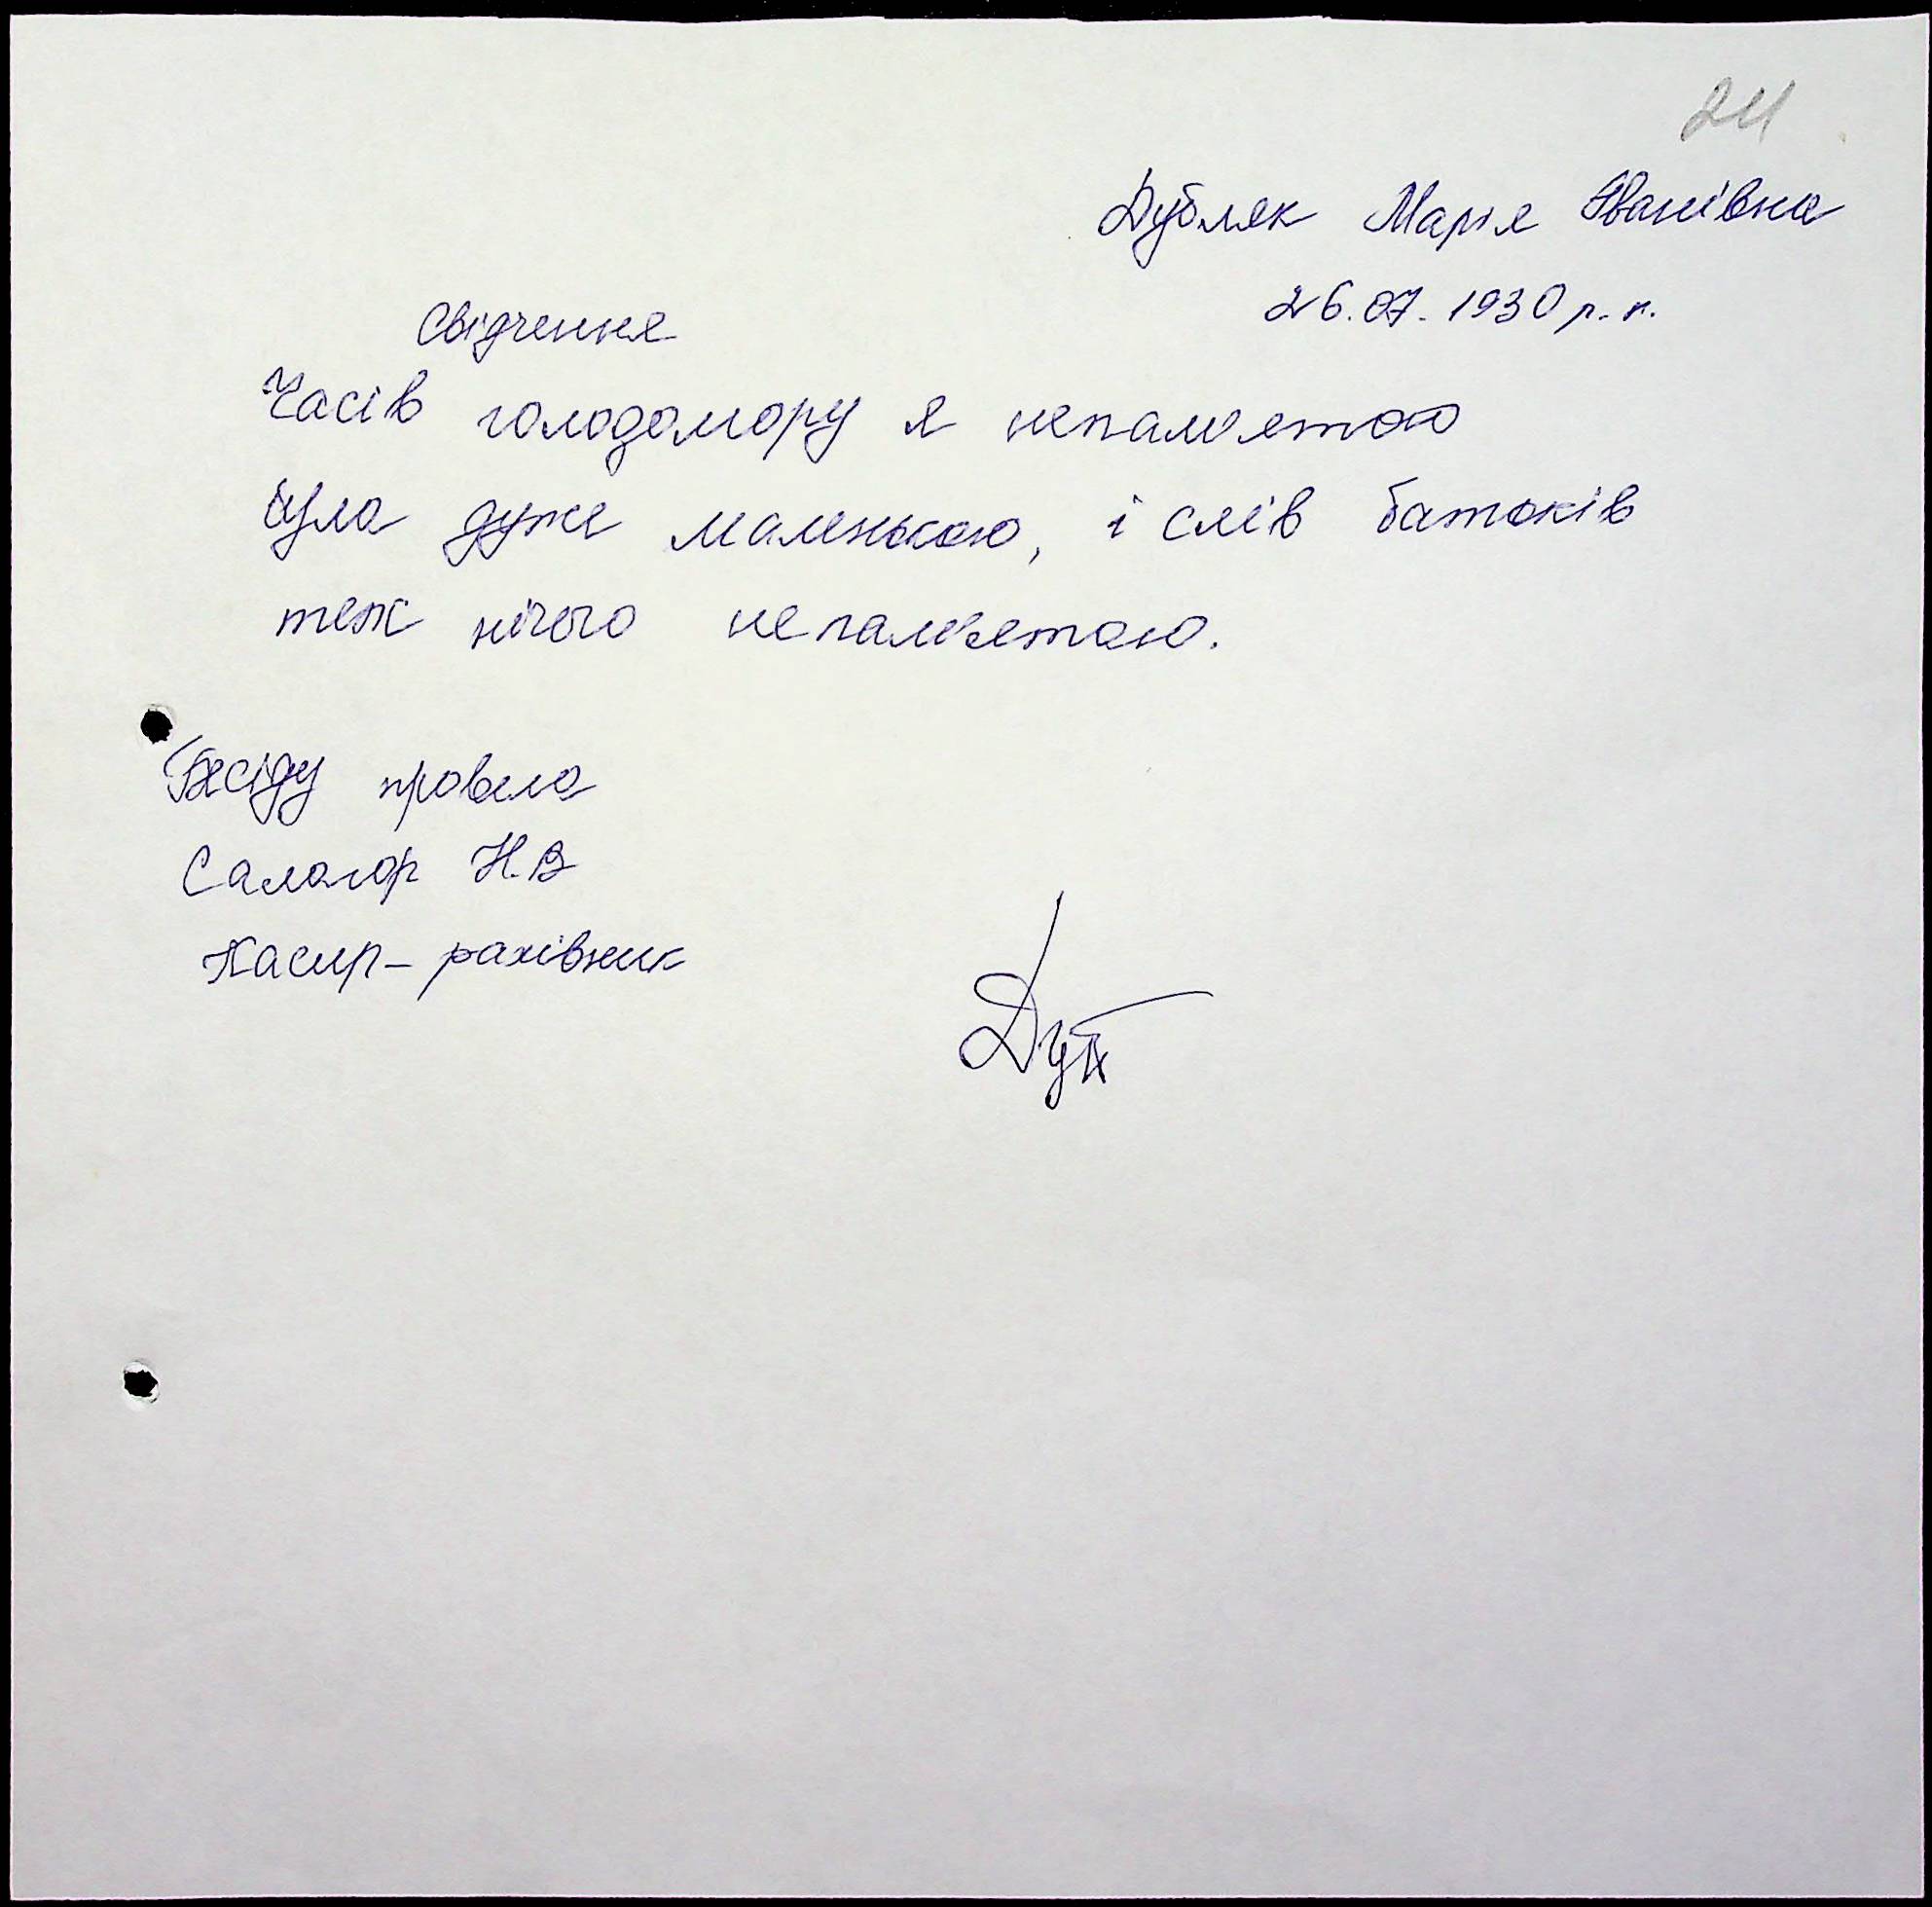 24
Дубляк Марія Іванівна
26.07.1930 р.н.
Свідчення
Часів голодомору я непам'ятаю
була дуже маленькою, і слів батьків
теж нічого непам'ятаю.
Бесіду провела
Салогор Н.В
Касир-рахівник